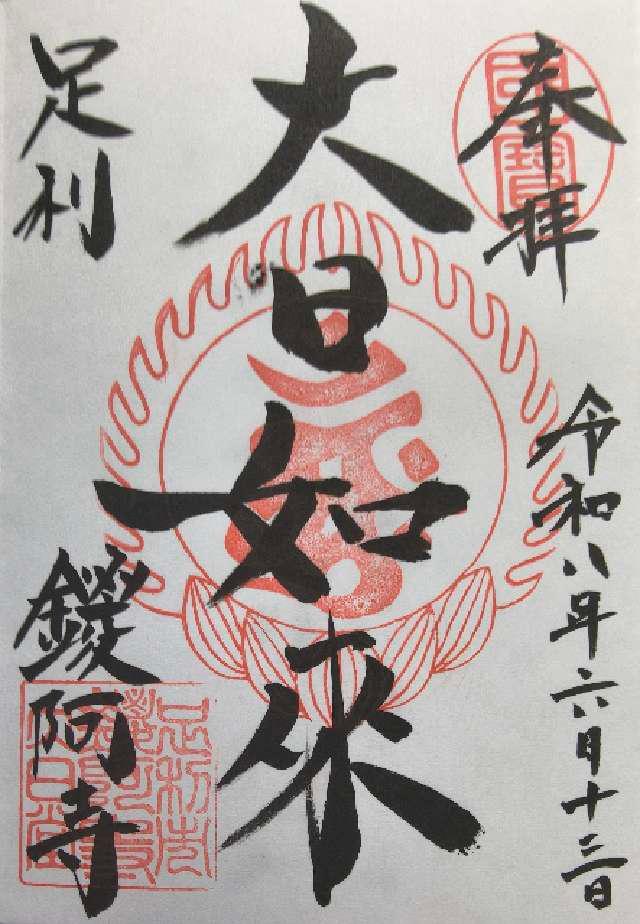 奉拝
国寶
令和八年六月十三日
大日如來
足利
鑁阿寺